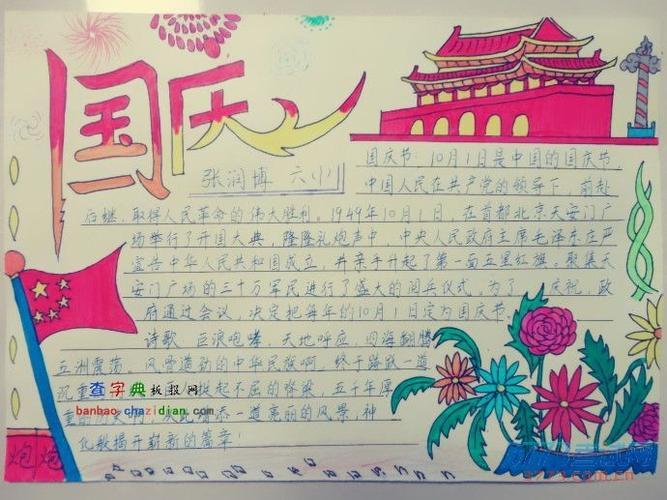 国庆
张润博 六(1)
国庆节:10月1日是中国的国庆节
中国人民在共产党的领导下,前赴
后继,取得人民革命的伟大胜利。1949年10月1日,在首都北京天安门广
场举行了开国大典,隆隆礼炮声中,中央人民政府主席毛泽东庄严
宣告中华人民共和国成立,并亲手升起了第一面五星红旗。聚集天
安门广场的三十万军民进行了盛大的阅兵仪式。为了 庆祝,政
府通过会议,决定把每年的10月1日定为国庆节。
诗歌:巨浪咆哮,天地呼应,四海翻腾
五洲震荡。风骨遒劲的中华民族啊,终于
沉重 挺起不屈的脊梁,五千年厚
重的历史 一道亮丽的风景,神
化般揭开崭新的篇章!
炮炮
查字典板报网
banbao·chazidian.com